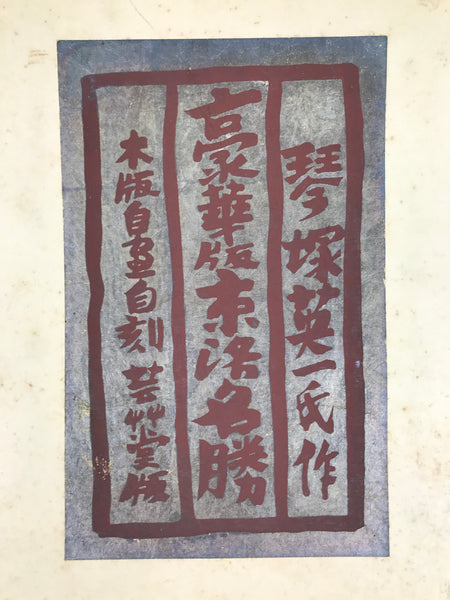 琴塚英一氏作
豪華版京洛名勝
木版自画自刻 芸艸堂版